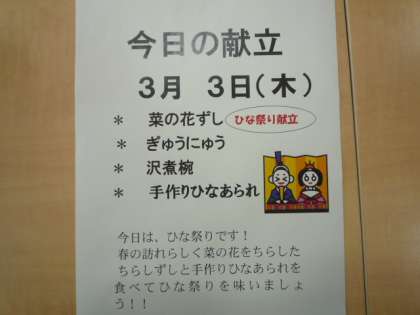 今日の献立
3月 3日(木)
* 菜の花ずし ひな祭り献立
* ぎゅうにゅう
* 沢煮椀
* 手作りひなあられ
今日は、ひな祭りです！
春の訪れらしく菜の花をちらした
ちらしずしと手作りひなあられを
食べてひな祭りを味いましょ
う！！